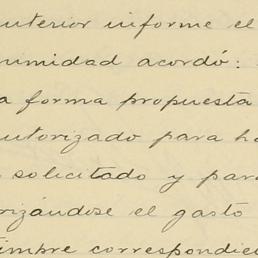 anterior informe el
unimidad acordó:
a forma propuesta
autorizado para ha
solicitado y para
rizándose el gasto
timpre correspondie